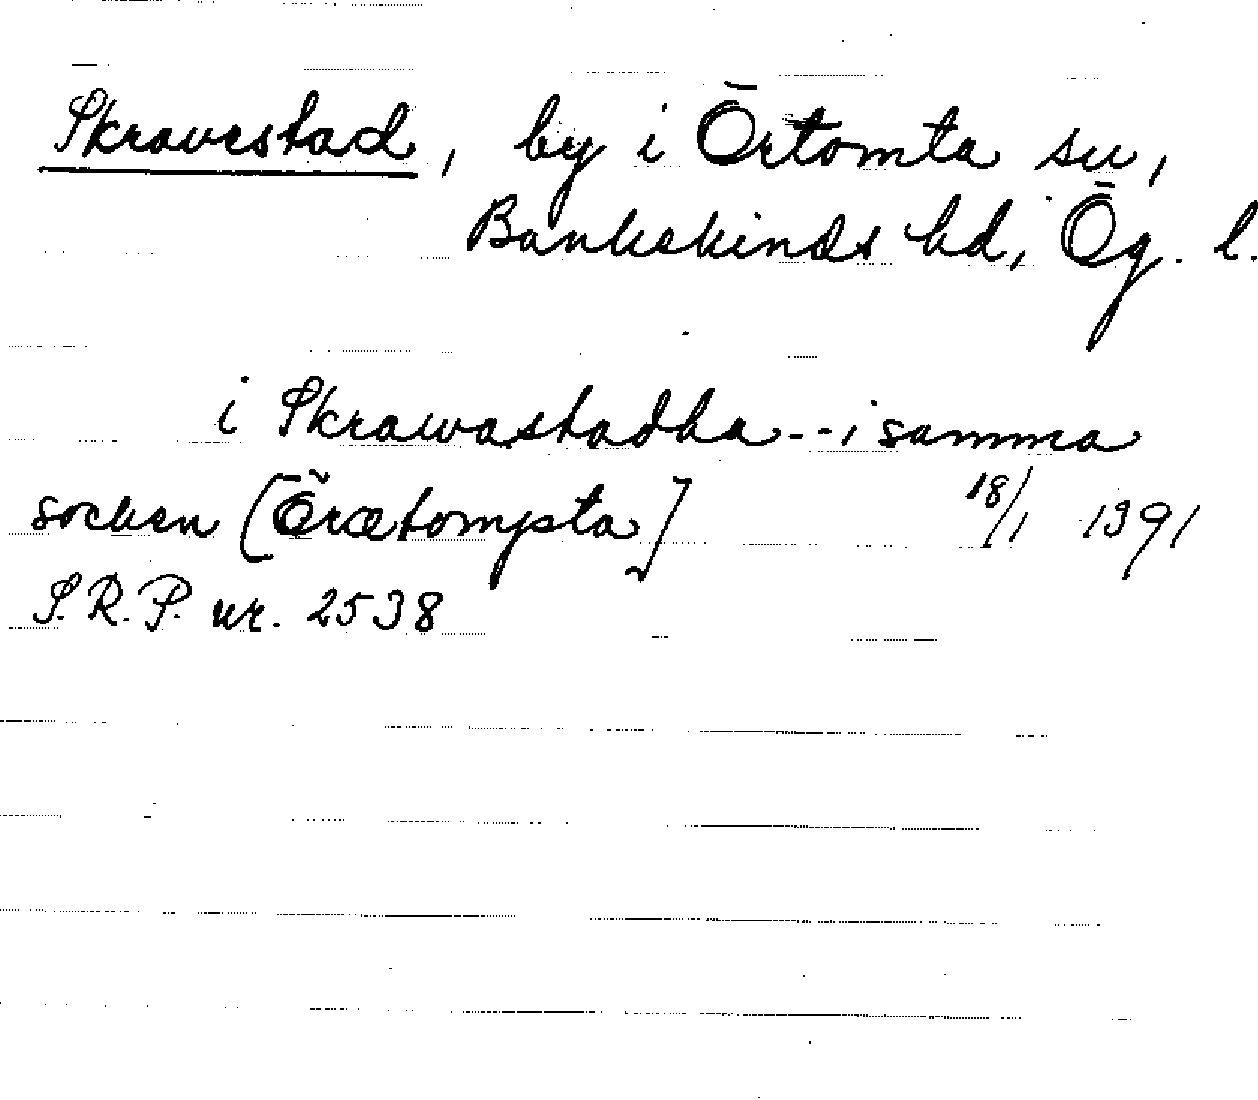 Skravestad, by i Örtomta sn,
Bankekinds hd, Ög. l.
i Skrawastadha -- i samma
socken [Örætompsta] 18/1 1391
S.R.P. nr. 2538